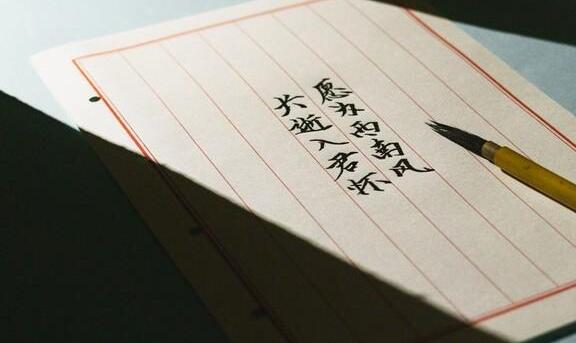 愿为西南风
长逝入君怀